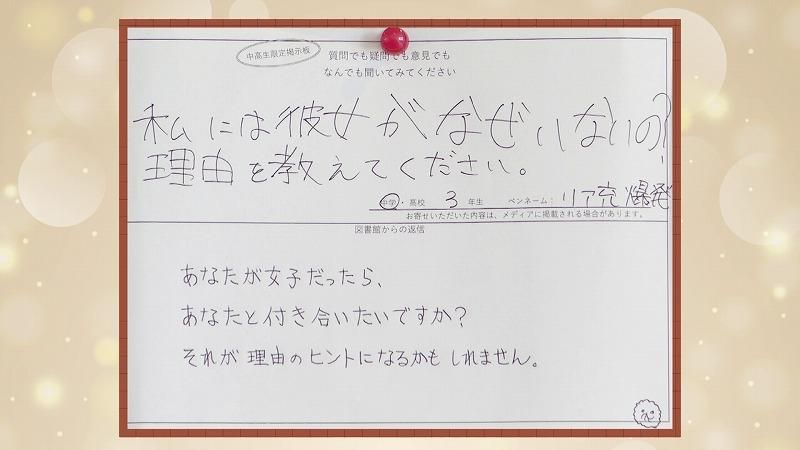 中高生限定掲示板
質問でも疑問でも意見でも
なんでも聞いてみてください
私には彼女がなぜいないの?
理由を教えてください。
中学・高校 3 年生 ペンネーム: リア充爆発
お寄せいただいた内容は、メディアに掲載される場合があります。
図書館からの返信
あなたが女子だったら、
あなたと付き合いたいですか?
それが理由のヒントになるかもしれません。